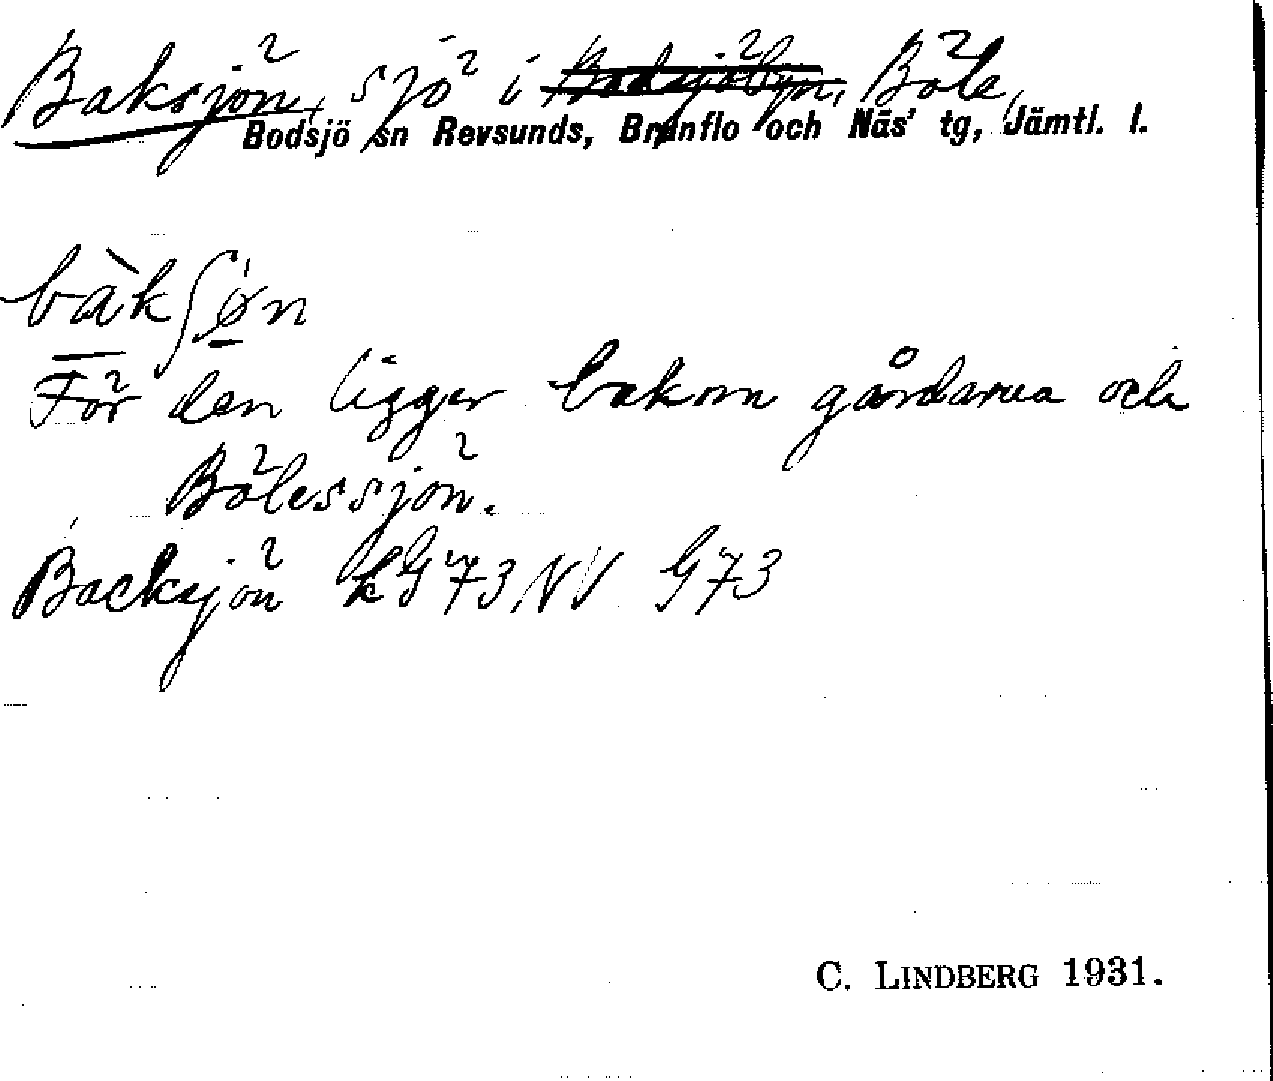 Baksjön, sjö i Bodsjöbyn, Böle,
Bodsjö sn Revsunds, Brunflo och Näs' tg, Jämtl. l.
bàkʃøn
För den ligger bakom gårdarna och
Bölessjön.
Backsjön kG73NV G73
C. LINDBERG 1931.